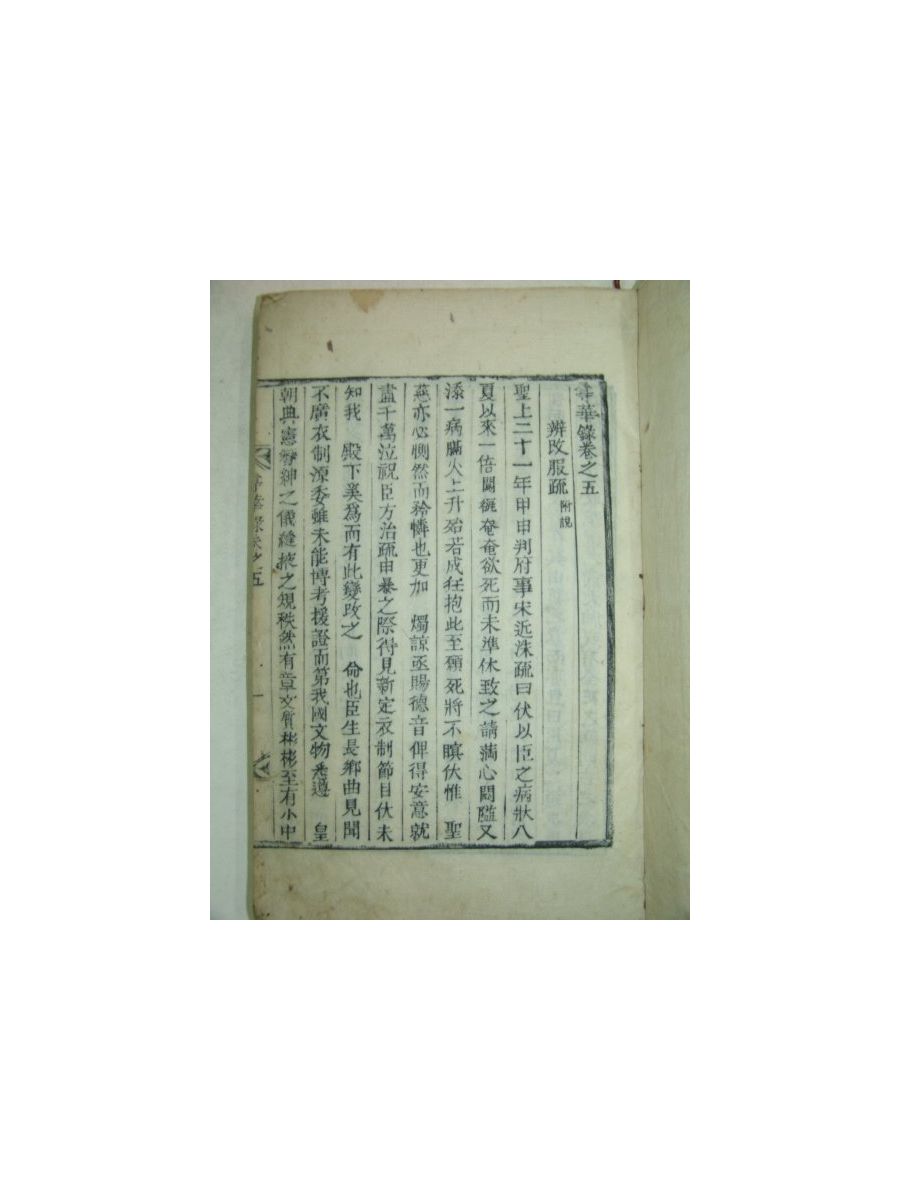 華錄卷之五
辨改服疏 附說
聖上二十一年甲申判府事宋近洙疏曰伏以臣之病狀入
夏以來一倍闖奄奄欲死而未準休致之請滿心悶隘又
添一病滿火上升殆若成狂抱此至願死將不瞑伏惟 聖
慈亦必惻然而矜憐也更加 燭諒亟賜德音俾得安意就
盡千萬泣祝臣方治疏申暴之際得見新定衣制節目伏未
知我 殿下奚爲而有此變改之 命也臣生長鄕曲見聞
不廣衣制源委雖未能博考援證而第我國文物悉遵 皇
朝典憲紳之儀縫掖之規秩然有章文質彬彬至有小中
華錄卷之五
一